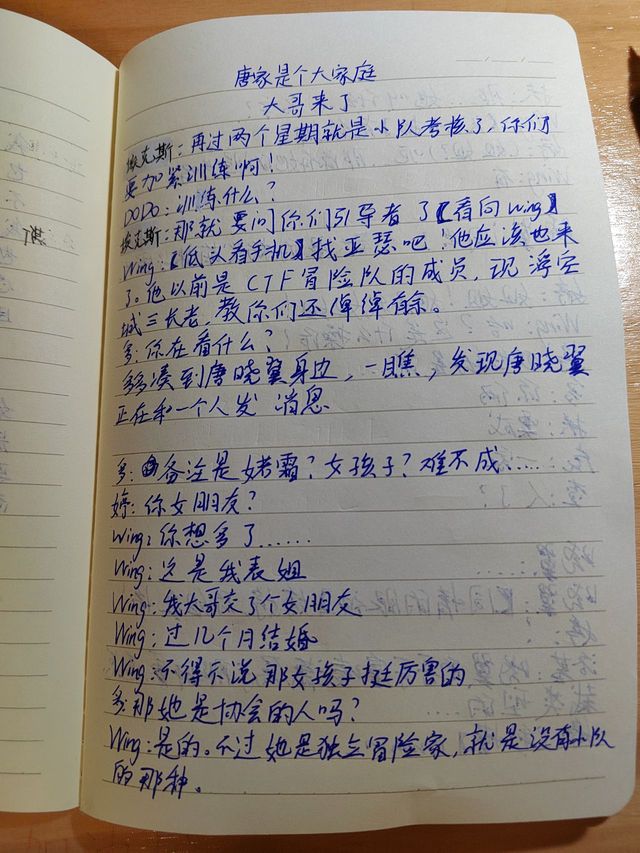 唐家是个大家庭
大哥来了
埃克斯：再过两个星期就是小队考核了，你们
要加紧训练啊！
DODO：训练什么？
埃克斯：那就要问你们引导者了【看向wing】
Wing：【低头看手机】找亚瑟吧！他应该也来
了。他以前是CTF冒险队的成员，现浮空
城三长老，教你们还绰绰有余。
多：你在看什么？
多多凑到唐晓翼身边，一瞧，发现唐晓翼
正在和一个人发 消息
多：备注是姥霸？女孩子？难不成……
婷：你女朋友？
Wing：你想多了……
Wing：这是我表姐
Wing：我大哥交了个女朋友
Wing：过几个月结婚
Wing：不得不说那女孩子挺厉害的
多：那她是协会的人吗？
Wing：是的。不过她是独立冒险家，就是没有小队
的那种。